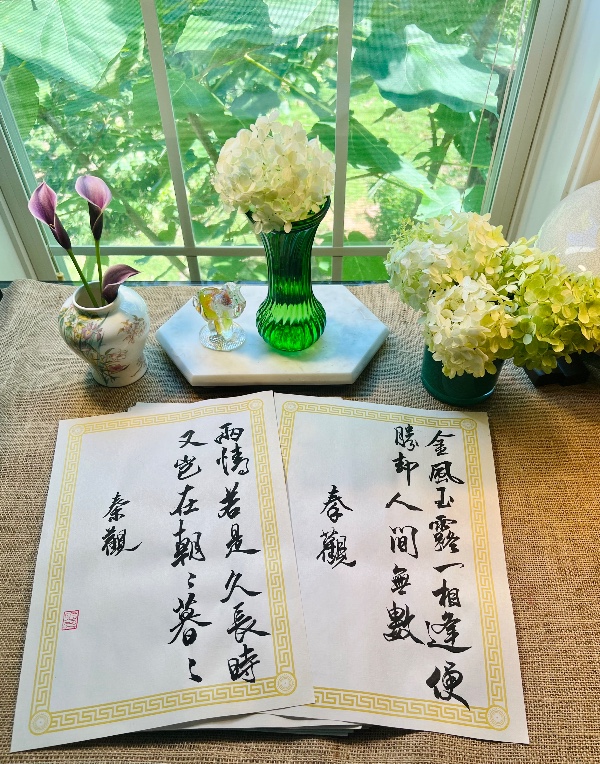 金風玉露一相逢便
勝却人間無數
秦觀
兩情若是久長時
又豈在朝〻暮〻
秦觀